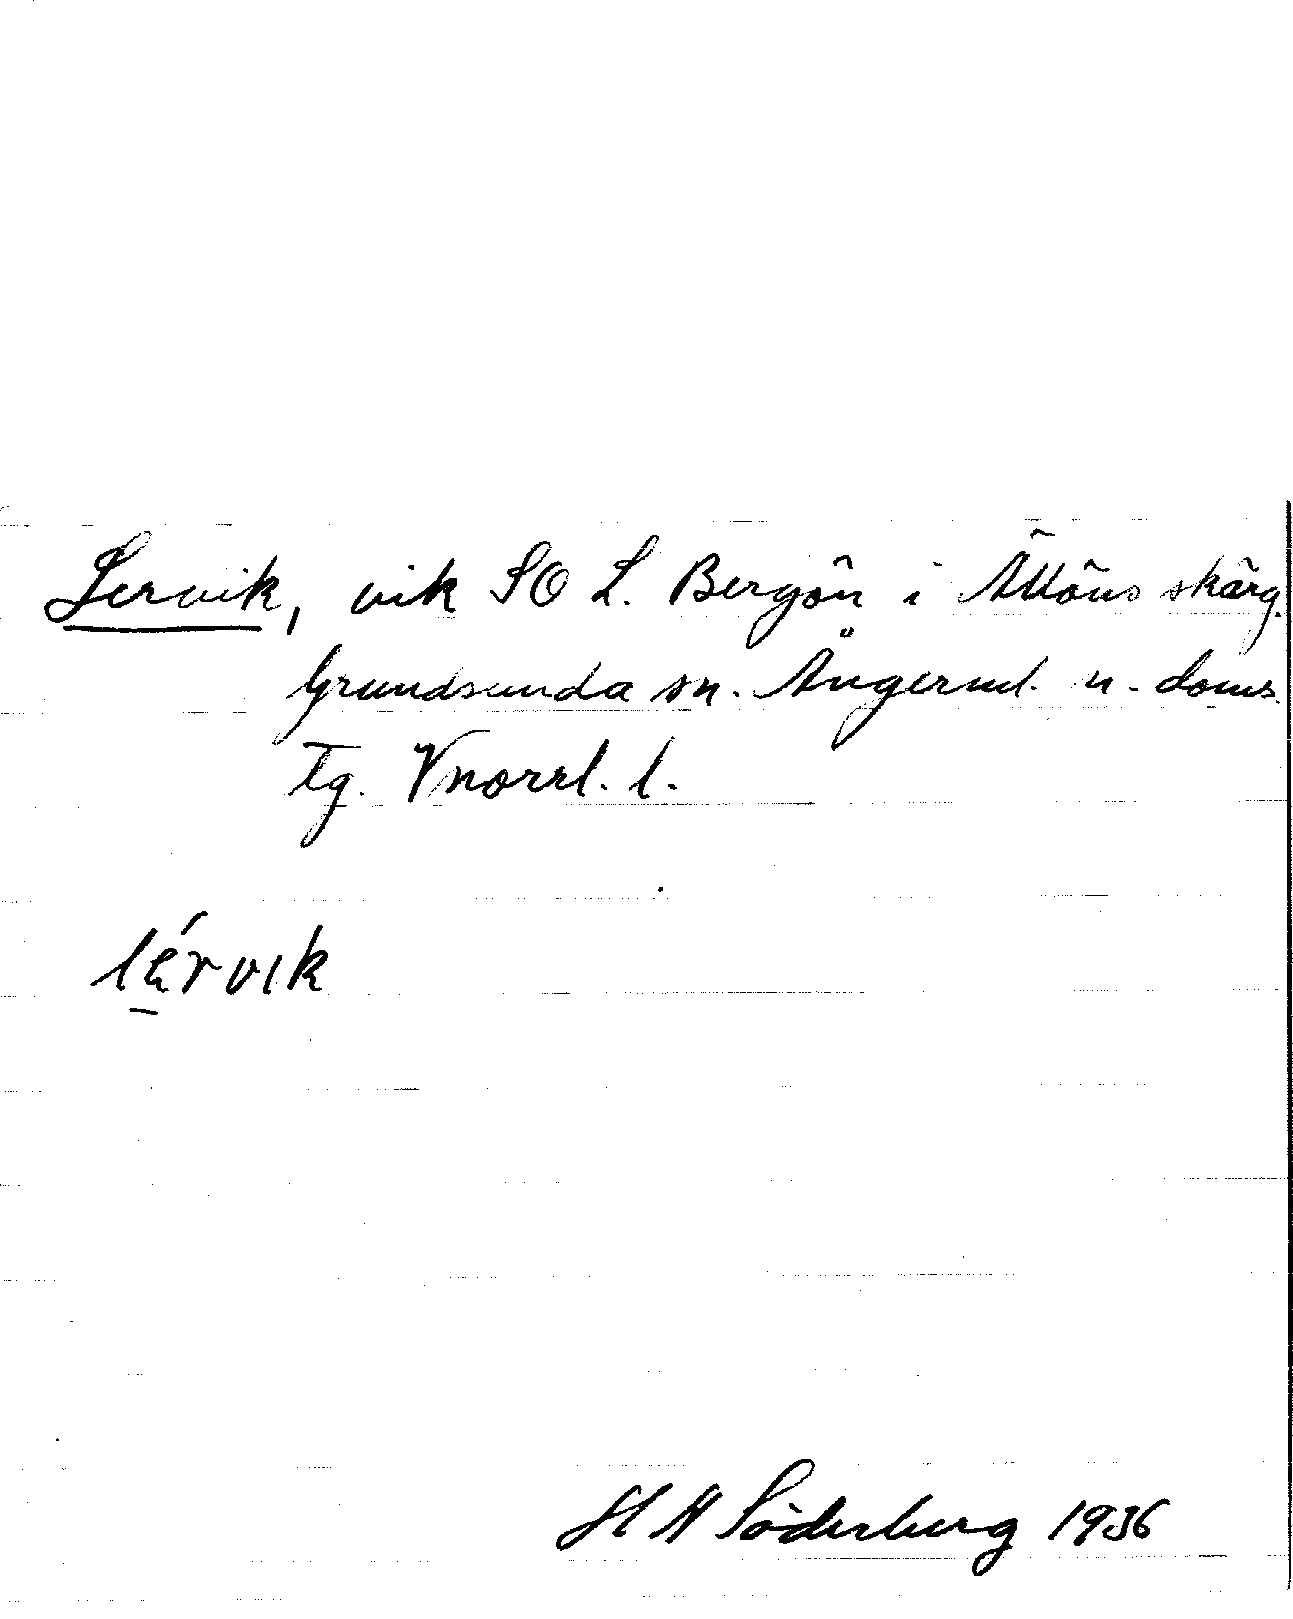 Lervik, vik SO L. Bergön i Ällöns skärg.
Grundsunda sn. Ångerml. n. doms.
Tg. Vnorrl. l.
lérvik
H A Söderberg 1936